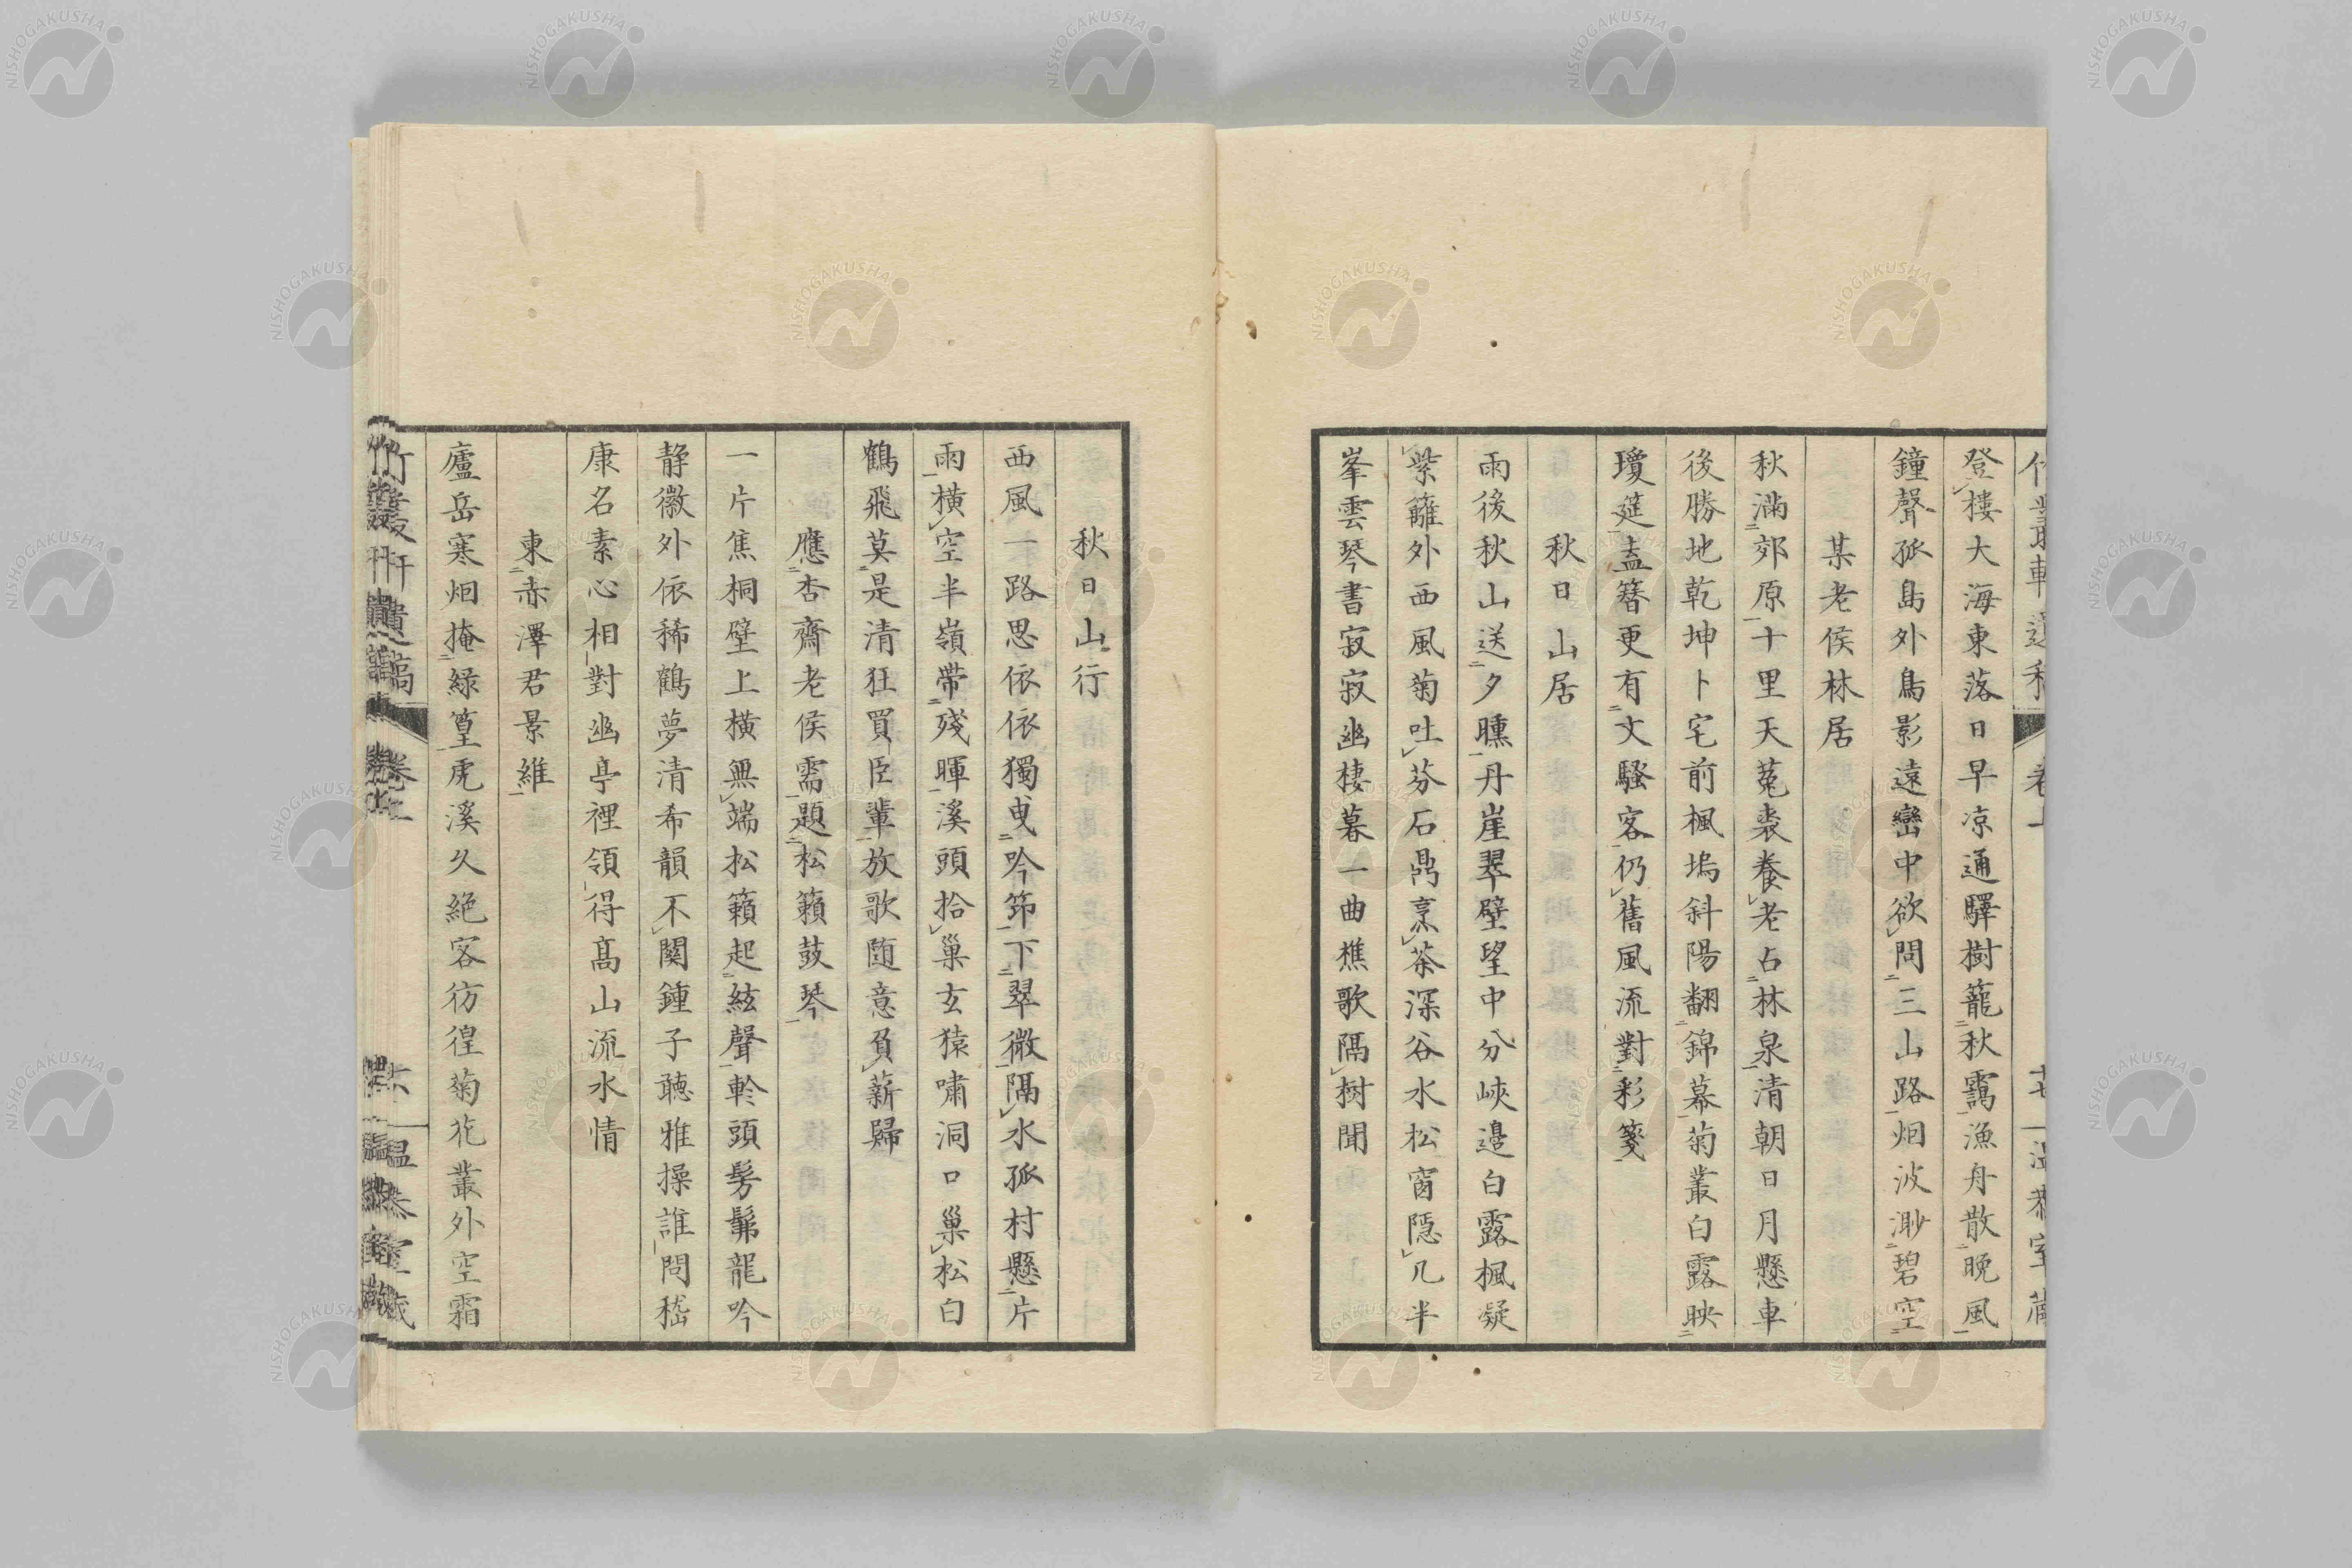 登樓大海東落日早凉通驛樹籠秋靄漁舟散晚風
鐘聲孤島外鳥影遠巒中欲問三山路烟波渺碧空
某老侯林居
秋滿郊原十里天菟裘養老占林泉清朝日月懸車
後勝地乾坤卜宅前楓塢斜陽翻錦幕菊叢白露映
瓊筵盍簪更有文騷客仍舊風流對彩箋
秋日山居
雨後秋山送夕曛丹崖翠壁望中分峽邊白露楓凝
紫籬外西風菊吐芬石鼎烹茶深谷水松窗隱几半
峯雲琴書寂寂幽棲暮一曲樵歌隔樹聞
秋日山行
西風一路思依依獨曳吟笻下翠微隔水孤村懸片
雨橫空半嶺帶殘暉溪頭拾巢玄猿嘯洞口巢松白
鶴飛莫是清狂買臣輩放歌隨意負薪歸
應杏齋老侯需題松籟鼓琴
一片焦桐壁上橫無端松籟起絃聲軫頭髣髴龍吟
静徽外依稀鶴夢清希韻不關鍾子聽雅操誰問嵇
康名素心相對幽亭裡領得高山流水情
東赤澤君景維
廬岳寒烟掩綠篁虎溪久絕客彷徨菊花叢外空霜
卷二
NISHOGAKUSHA